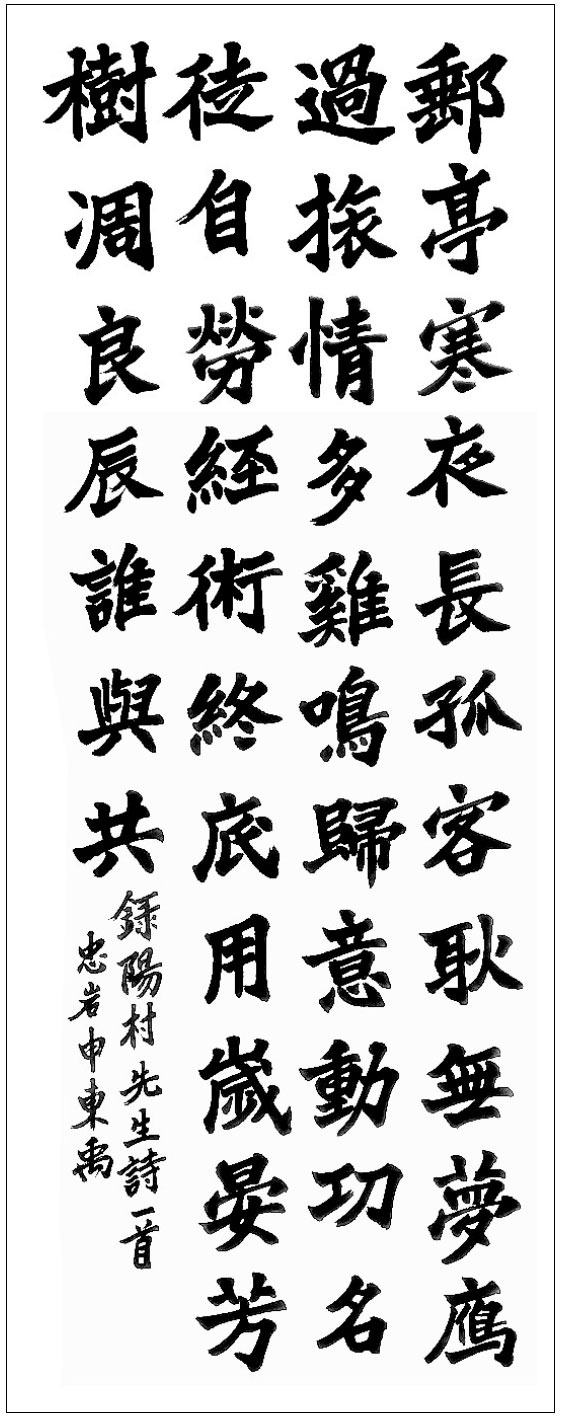 郵亭寒夜長孤客耿無夢鴈
過旅情多雞鳴歸意動功名
徒自勞經術終底用歲晏芳
樹凋良辰誰與共
錄陽村先生詩一首
忠岩申東禹